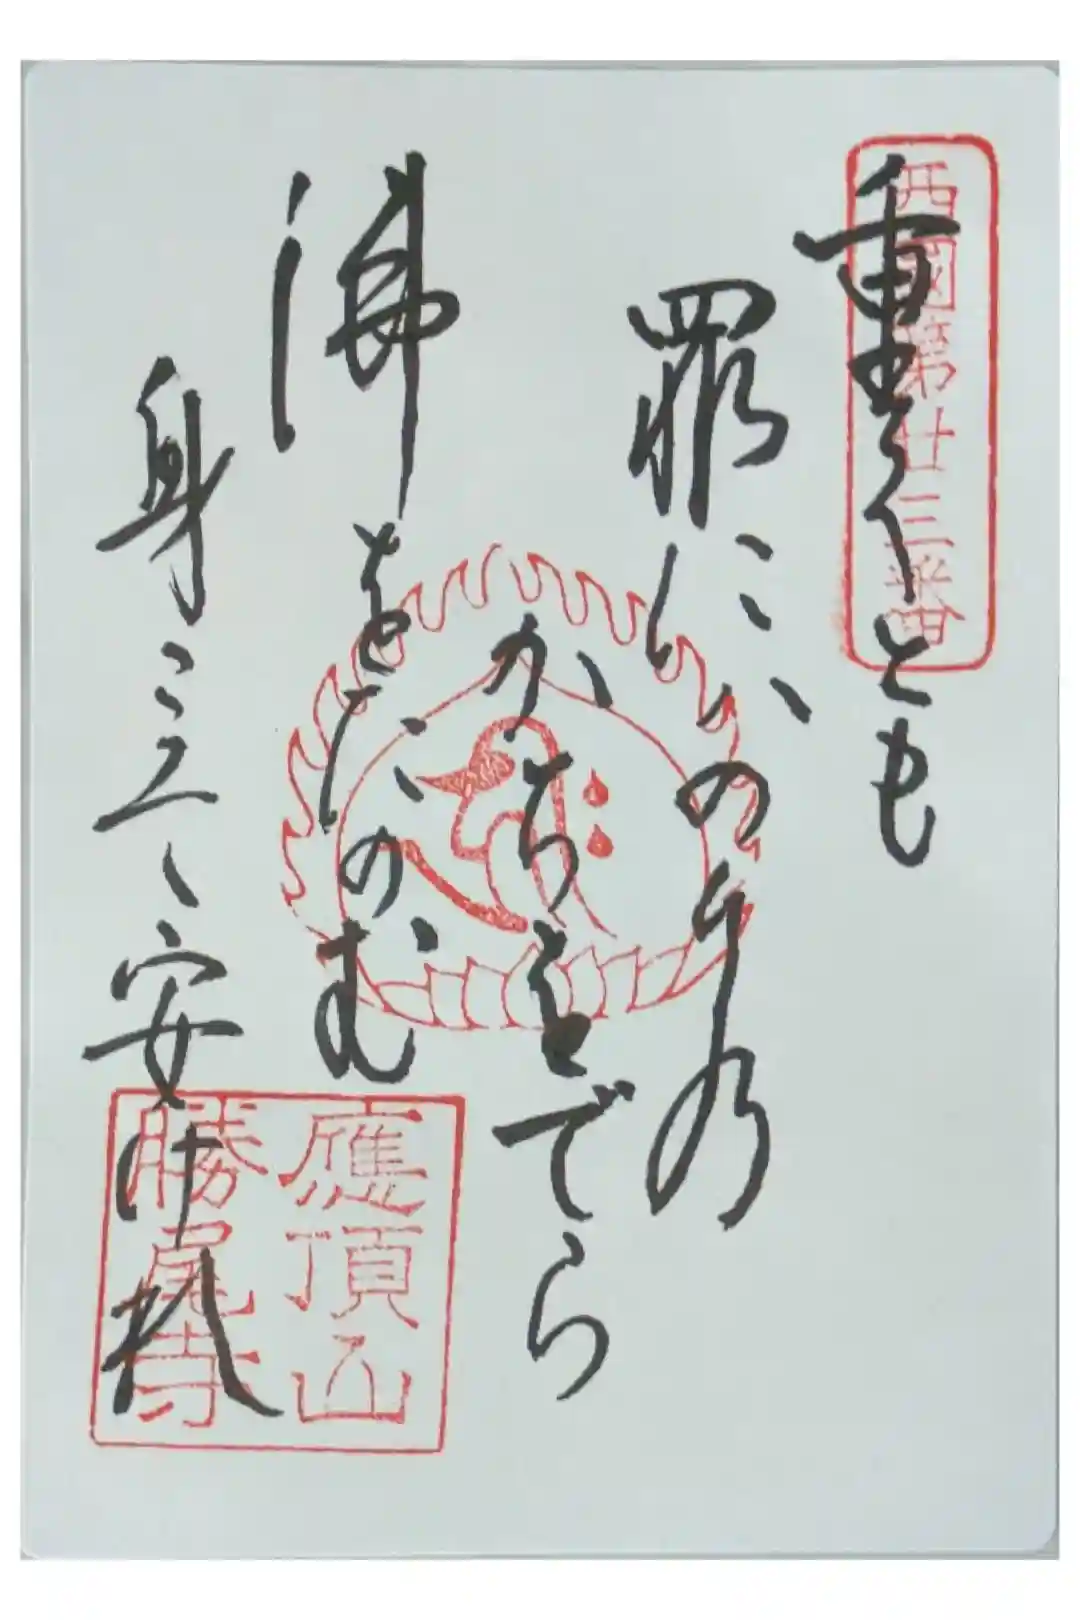 西國第廿三番
重くとも
罪にハのり乃
かちをでら
佛をたのむ
身こそ安けれ
應頂山
勝尾寺